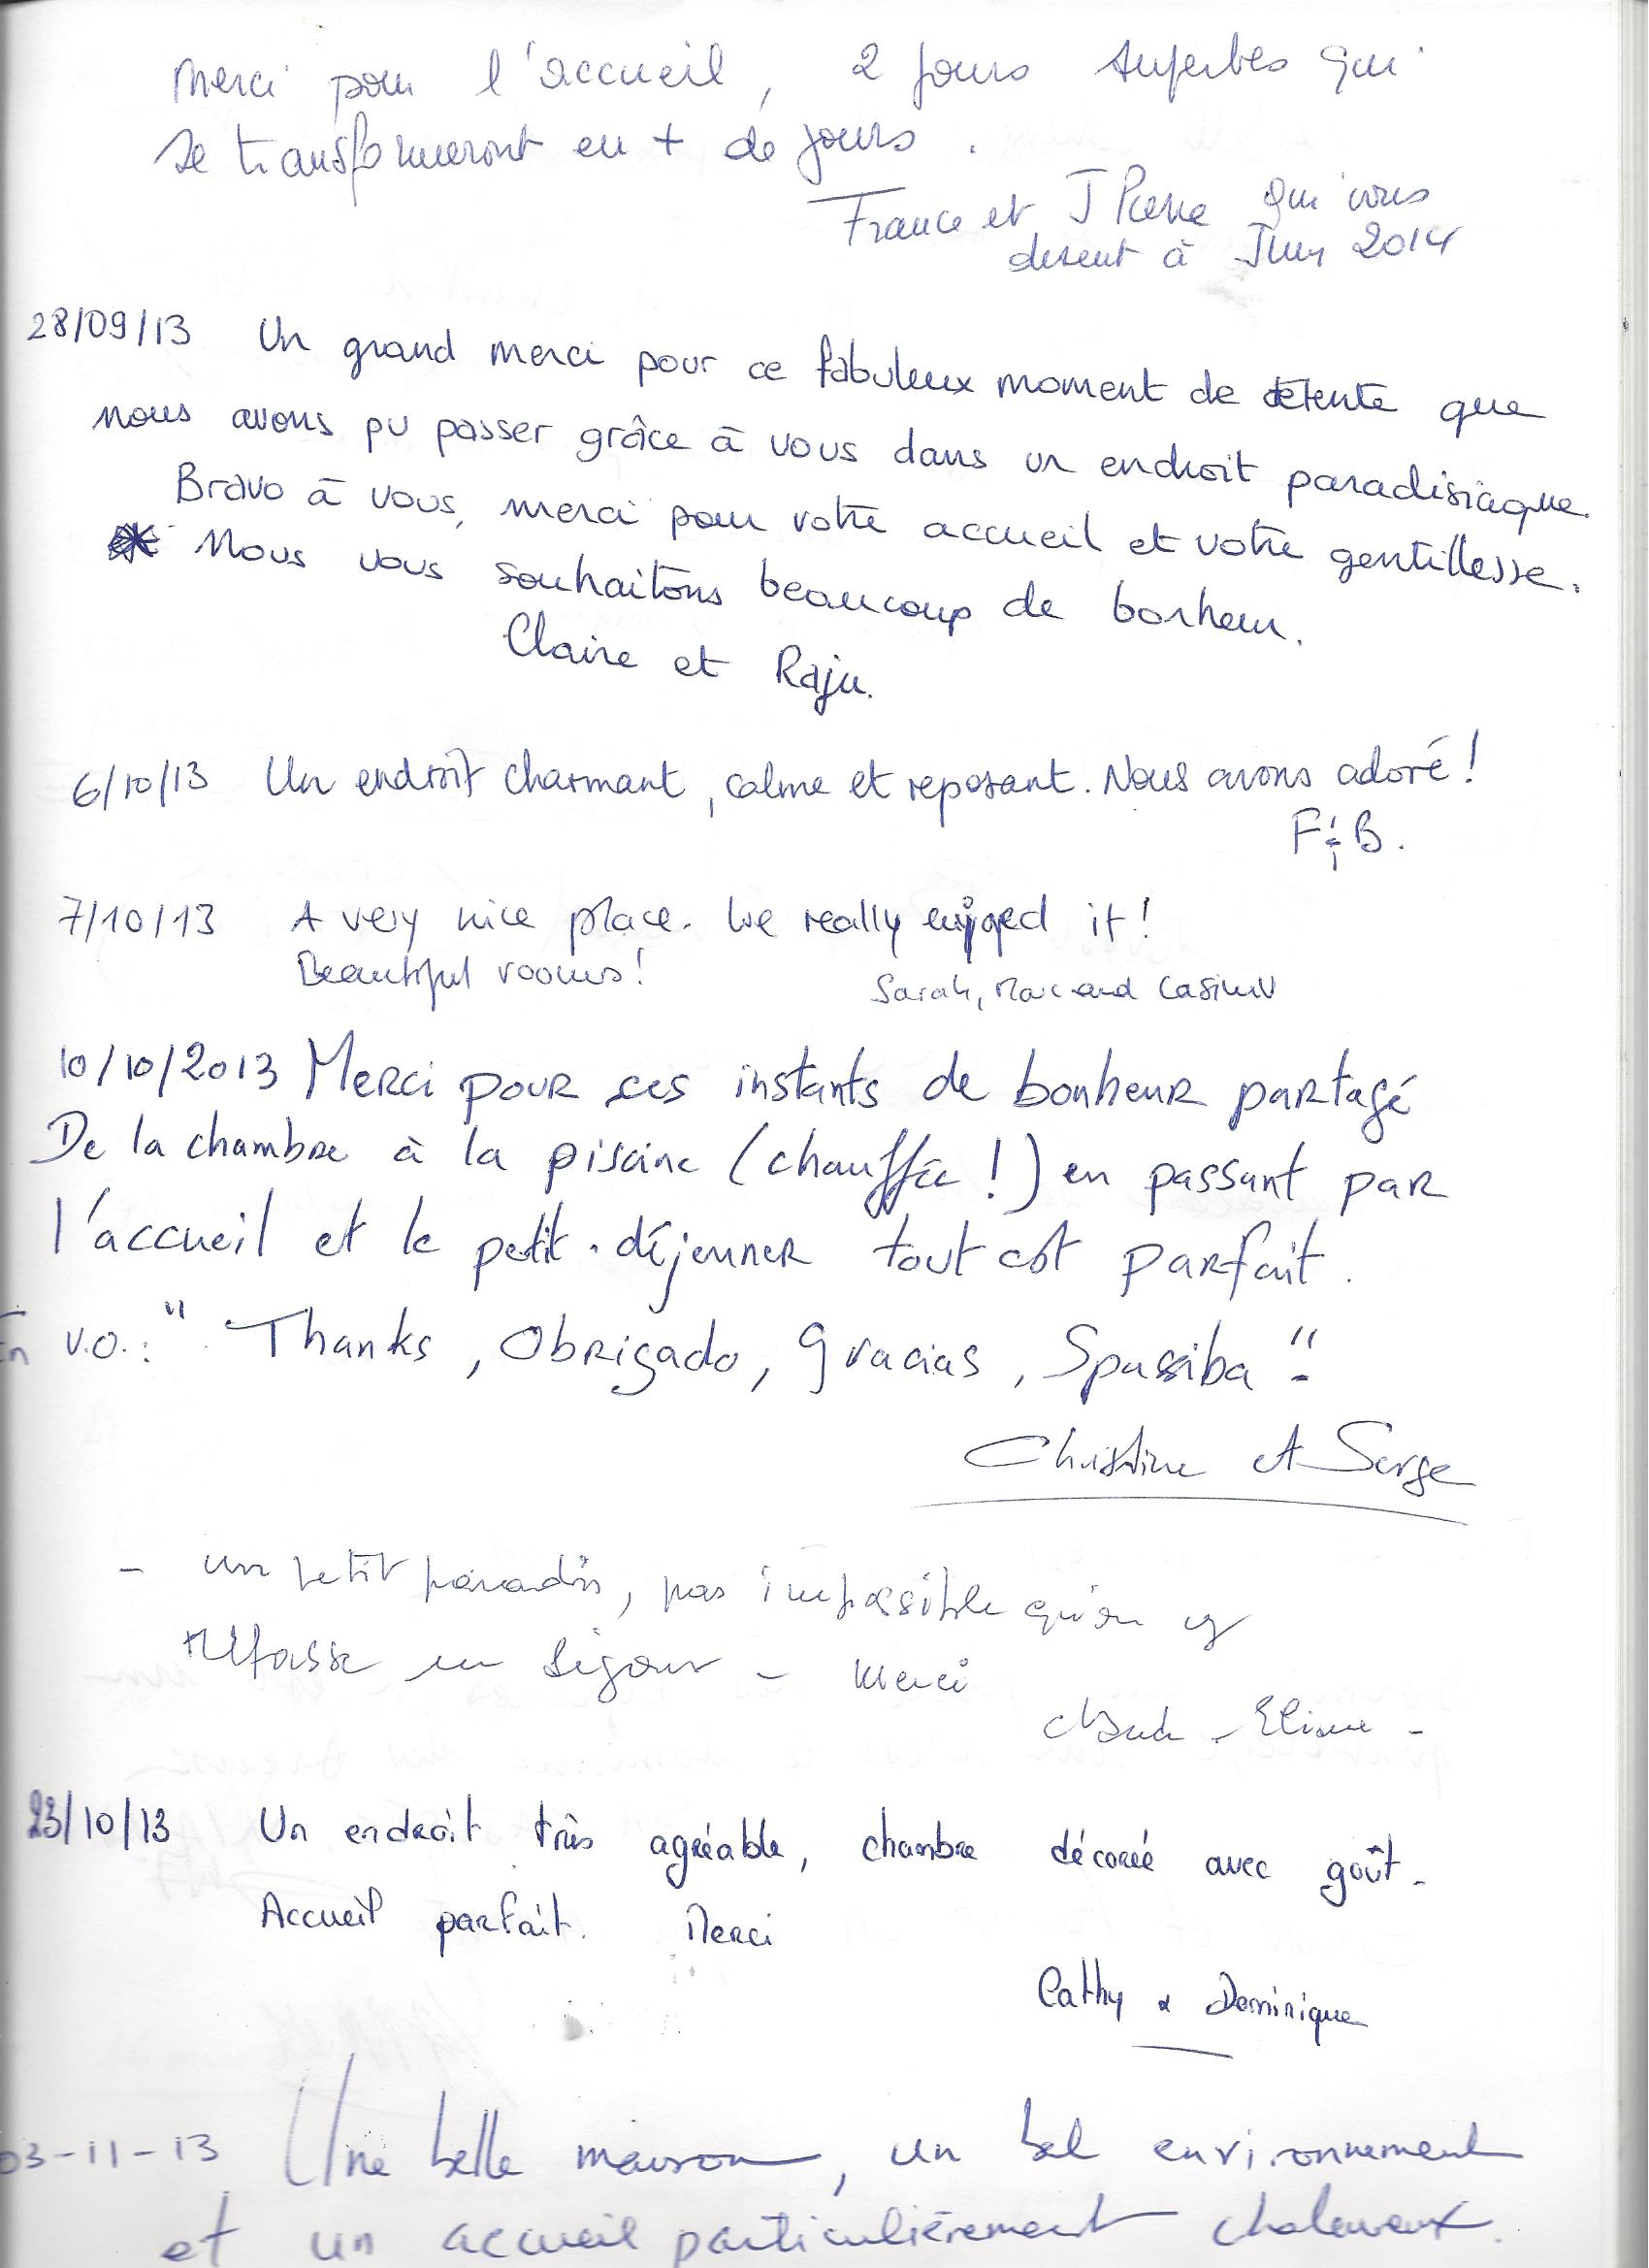 Merci pour l'accueil, 2 jours superbes qui
se transformeront en + de jours.
France et J Pierre qui vous
disent à Juin 2014
28/09/13 Un grand merci pour ce fabuleux moment de détente que
nous avons pu passer grâce à vous dans un endroit paradisiaque.
Bravo à vous, merci pour votre accueil et votre gentillesse.
Nous vous souhaitons beaucoup de bonheur.
Claire et Raju.
6/10/13 Un endroit charmant, calme et reposant. Nous avons adoré !
F & B.
7/10/13 A very nice place. We really enjoyed it!
Beautiful rooms!
Sarah, Marc and Casimir
10/10/2013 Merci pour ces instants de bonheur partagé
De la chambre à la piscine (chauffée !) en passant par
l'accueil et le petit-déjeunner tout est parfait.
En v.o. : " Thanks, Obrigado, Gracias, Spassiba "-
Christine et Serge
- un petit paradis, pas impossible qu'on y
refasse un séjour - Merci
Claude - Eliane -
23/10/13 Un endroit très agréable, chambre décorée avec goût.
Accueil parfait. Merci
Cathy & Dominique
03-11-13 Une belle maison, un bel environnement
et un accueil particulièrement chaleureux.